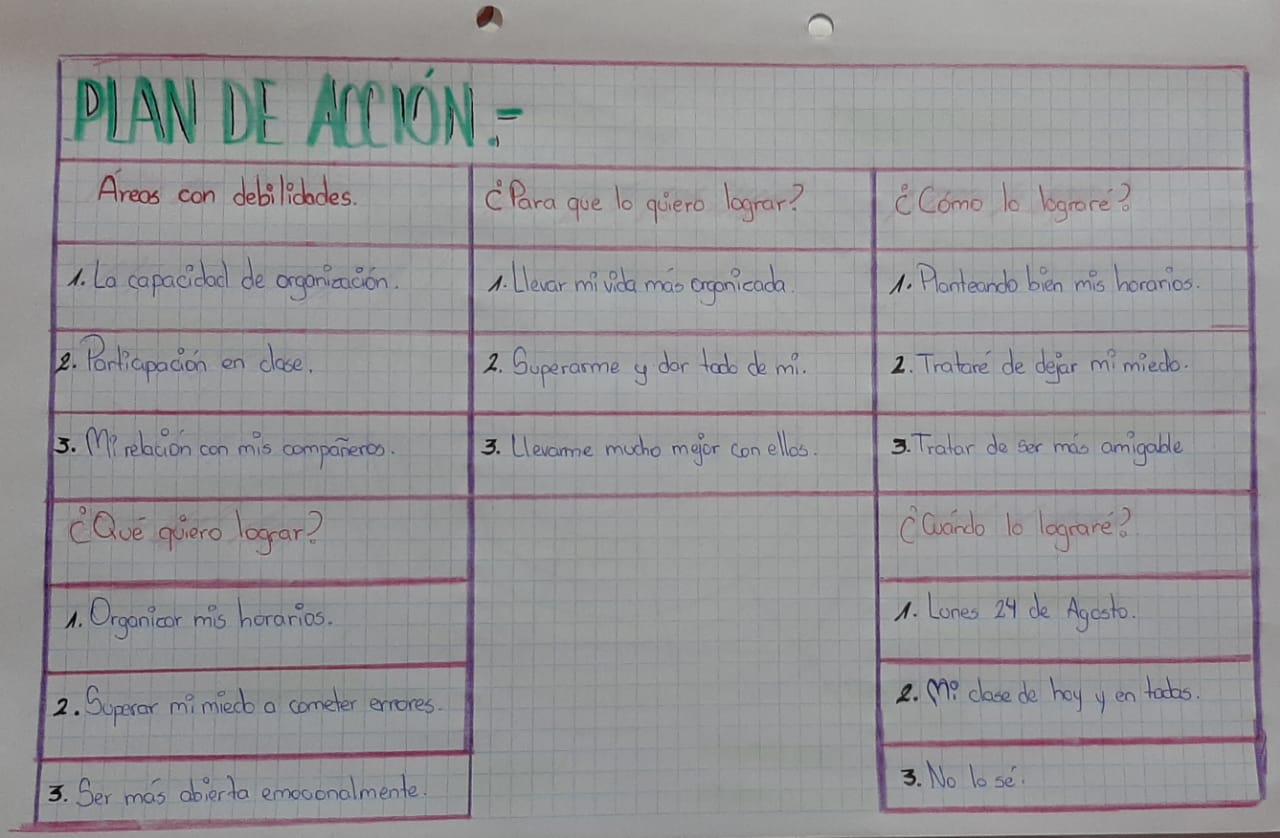 PLAN DE ACCIÓN.-
Áreas con debilidades.
¿Para que lo quiero lograr?
¿Cómo lo lograré?
1. La capacidad de organización.
1. Llevar mi vida más organizada.
1. Planteando bien mis horarios.
2. Participación en clase.
2. Superarme y dar todo de mi.
2. Trataré de dejar mi miedo.
3. Mi relación con mis compañeros.
3. Llevarme mucho mejor con ellos.
3. Tratar de ser más amigable
¿Qué quiero lograr?
¿Cuándo lo lograré?
1. Organizar mis horarios.
1. Lunes 24 de Agosto.
2. Superar mi miedo a cometer errores.
2. Mi clase de hoy y en todas.
3. Ser más abierta emocionalmente.
3. No lo sé.